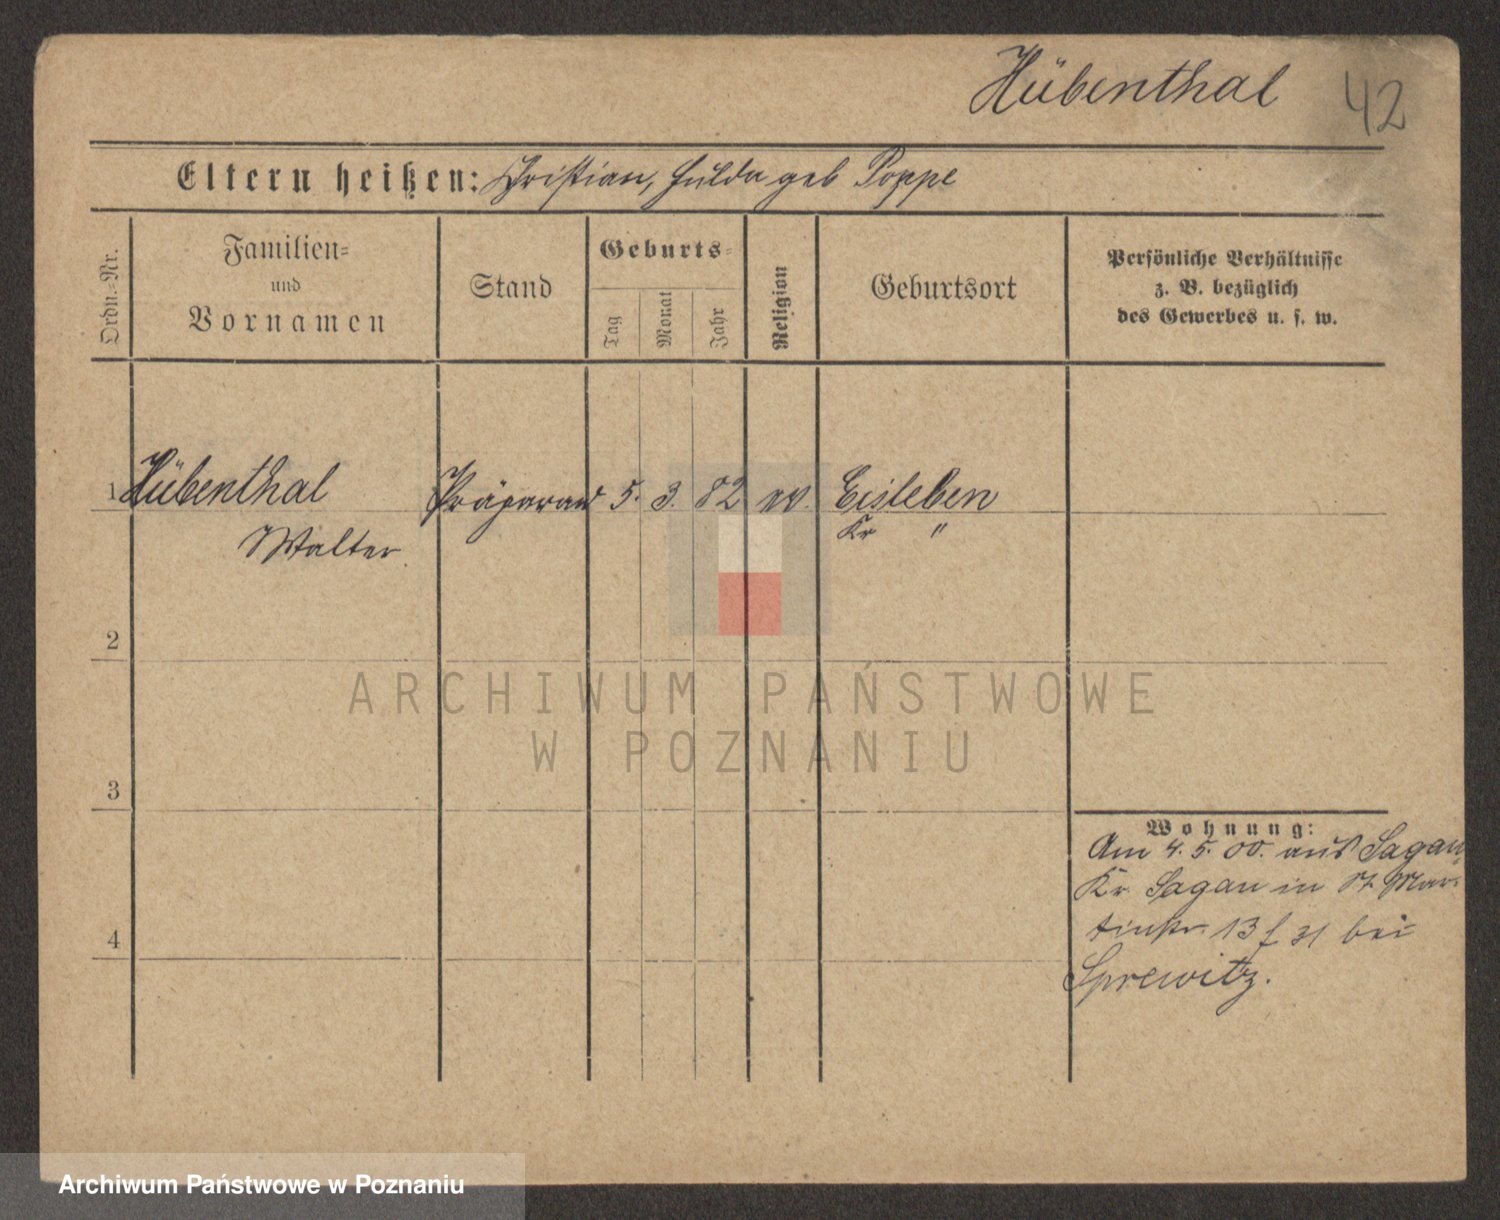 Hübenthal 42
Eltern heißen: Christian, Hulda geb Poppe
Ordn.-Nr.
Familien-
und
Vornamen
Stand
Geburts-
Tag
Monat
Jahr
Religion
Geburtsort
Persönliche Verhältnisse
z. B. bezüglich
des Gewerbes u. s. w.
1 Hübenthal Präparand 5. 3. 82 ev. Eisleben
Walter Kr "
2
ARCHIWUM PAŃSTWOWE
W POZNANIU
3
Wohnung:
Am 4. 5. 00. aus Sagan,
Kr Sagan in St Mar-
tinstr 13 bei
4
Sprewitz.
Archiwum Państwowe w Poznaniu